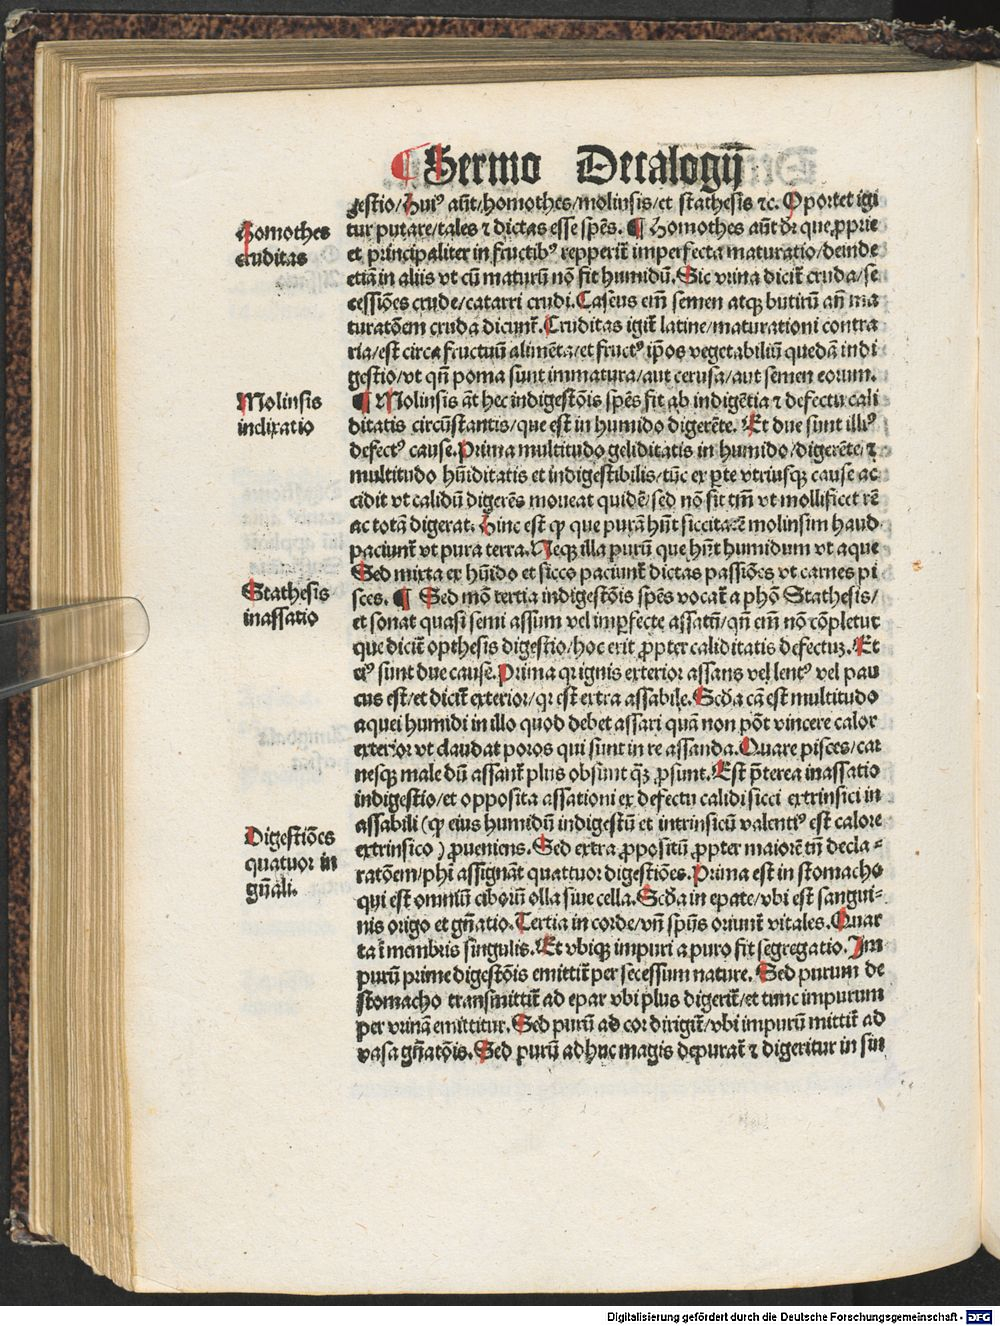 ¶ Sermo Decalogij
gestio/huiꝰ aūt/homothes/molinsis/et stathesis ⁊c. Oportet igi
tur putare/tales ⁊ dictas esse spēs. ¶ Homothes aūt dr̄ que ꝓprie
et principaliter in fructibꝰ repperit̄ imperfecta maturatio/deinde
etiā in aliis vt cū maturū nō fit humidū. Sic vrina dicit̄ cruda/se
cessiões crude/catarri crudi. Caseus em̄ semen atqꝫ butirū an̄ ma
turatōem cruda dicunt̄. Cruditas igit̄ latine/maturationi contra
ria/est circa fructuū alimēta/et fructꝰ ip̄os vegetabiliū quedā indi
gestio/vt qn̄ poma sunt immatura/aut cerusa/aut semen eorum.
¶ Molinsis āt hec indigestōis spēs fit ab indigētia ⁊ defectu cali
ditatis circūstantis/que est in humido digerēte. Et due sunt illiꝰ
defectꝰ cause. Prima multitudo geliditatis in humido/digerēte/⁊
multitudo hūiditatis et indigestibilis/tūc ex ꝑte vtriusqꝫ cause ac
cidit vt calidū digerēs moueat quidē/sed nō sit tm̄ vt mollificet rē
ac totā digerat. Hinc est ꝙ que purā hn̄t siccitatē molinsim haud
paciunt̄ vt pura terra. Neqꝫ illa purū que hn̄t humidum vt aque
Sed mixta ex hūido et sicco paciunt̄ dictas passiões vt carnes pi
sces. ¶ Sed mō tertia indigestōis spēs vocat̄ a phō Stathesis/
et sonat quasi semi assum vel imꝑfecte assatū/qn̄ em̄ nō cōpletur
que dicit̄ opthesis digestio/hoc erit ꝓpter caliditatis defectuꝫ. Et
eiꝰ sunt due cause. Prima qr ignis exterior assans vel lentꝰ vel pau
cus est/et dicit̄ exterior/qr est extra assabile. Scd̄a cā est multitudo
aquei humidi in illo quod debet assari quā non pōt vincere calor
exterior vt claudat poros qui sunt in re assanda. Quare pisces/car
nesqꝫ male dū assant̄ plus obsunt qꝫ̄ ꝓsunt. Est p̄terea inassatio
indigestio/et opposita assationi ex defectu calidi sicci extrinsici in
assabili (ꝙ eius humidū indigestū et intrinsicū valentiꝰ est calore
extrinsico) ꝓueniens. Sed extra ꝓpositū ꝓpter maiorē tn̄ decla⸗
ratōem/phi assignāt quattuor digestiões. Prima est in stomacho
qui est omniū ciborū olla siue cella. Scd̄a in epate/vbi est sangui⸗
nis origo et gn̄atio. Tertia in corde/vn̄ sp̄us oriunt̄ vitales. Quar
ta ī menbris singulis. Et vbiqꝫ impuri a puro fit segregatio. Im
purū prime digestōis emittit̄ per secessum nature. Sed purum de
stomacho transmittit̄ ad epar vbi plus digerit̄/et tunc impurum
per vrinā emittitur. Sed purū ad cor dirigit̄/vbi impurū mittit̄ ad
vasa gn̄atōis. Sed purū adhuc magis depurat̄ ⁊ digeritur in sin
Homothes
cruditas
Molinsis
inelixatio
Stathesis
inassatio
Digestiões
quatuor in
gn̄ali.
Digitalisierung gefördert durch die Deutsche Forschungsgemeinschaft - DFG